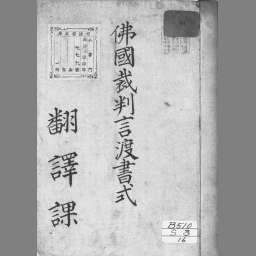 佛國裁判言渡書式
翻譯課
B510
S 3
16